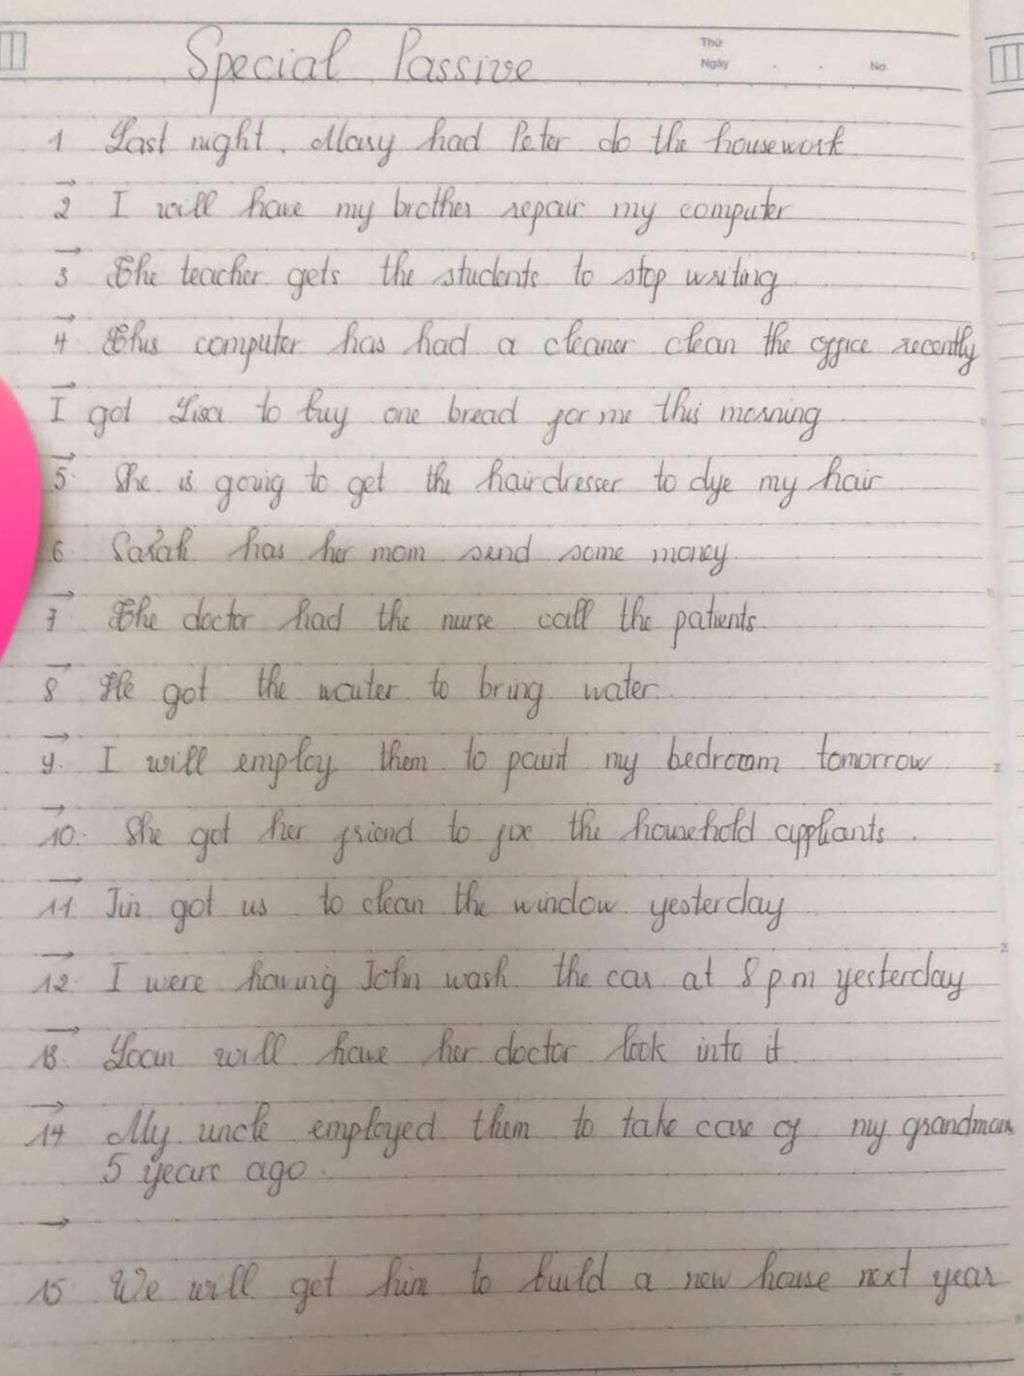 Special Passive
Thứ
Ngày . . No.
1 Last night, Mary had Peter do the housework
→
2 I will have my brother repair my computer
→
3 The teacher gets the students to stop writing
→
4 This computer has had a cleaner clean the office recently
→
I got Lisa to buy one bread for me this morning
→
5 She is going to get the hairdresser to dye my hair
6 Sarah has her mom send some money
→
7 The doctor had the nurse call the patients.
→
8 He got the waiter to bring water.
→
9. I will employ them to paint my bedroom tomorrow
→
10. She got her friend to fix the household appliants.
→
11 Jin got us to clean the window yesterday
→
12. I were having John wash the car at 8 p.m yesterday
→
13. Loan will have her doctor look into it
→
14 My uncle employed them to take care of my grandmom
5 years ago.
→
15 We will get him to build a new house next year